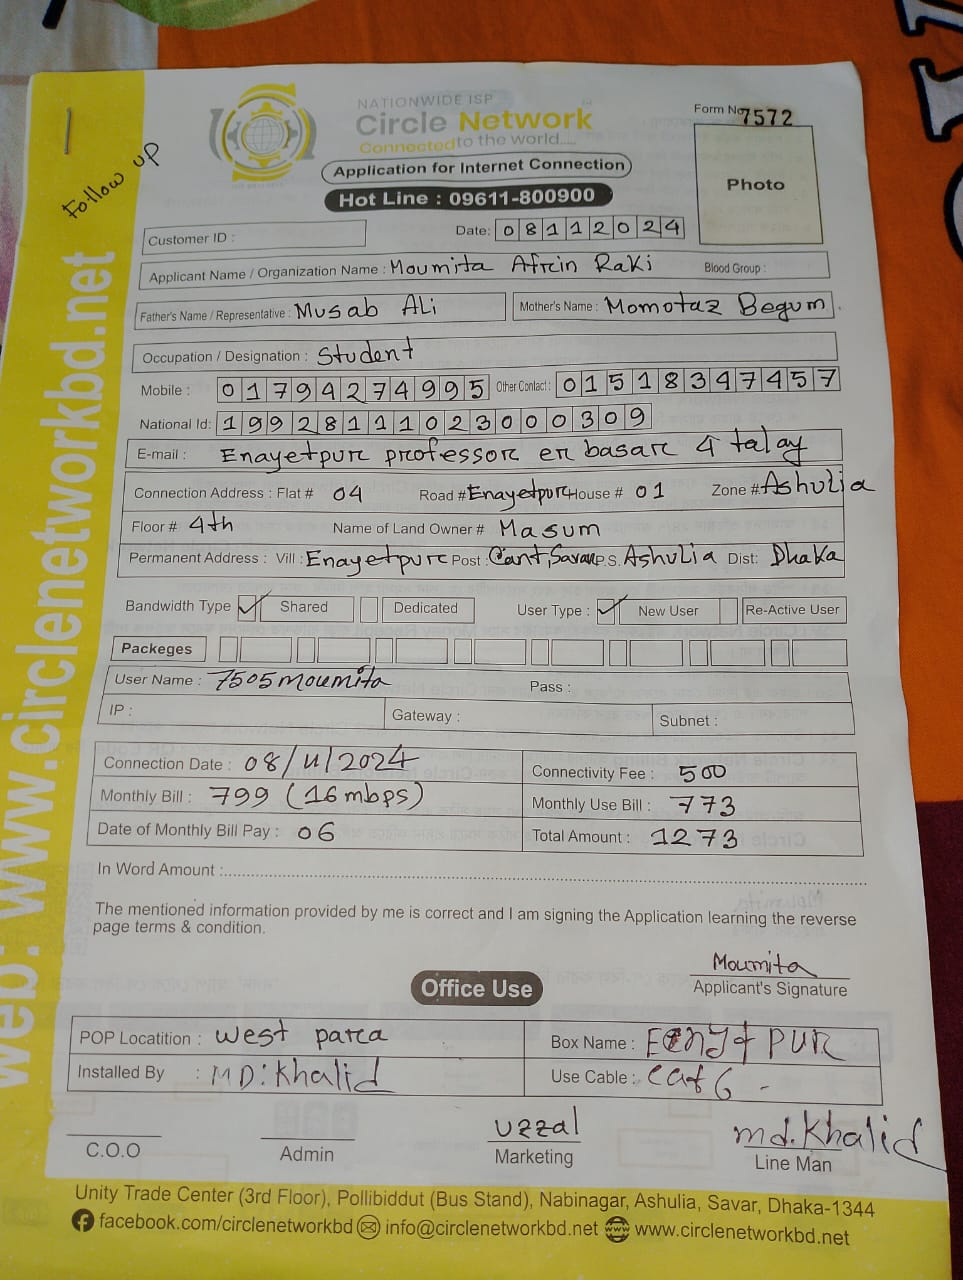 NATIONWIDE ISP
Circle Network
Connected to the world.....
Application for Internet Connection
Hot Line : 09611-800900
Form No 7572
Photo
Follow up
Customer ID :
Date: 08112024
Applicant Name / Organization Name : Moumita Afrin Raki Blood Group :
Father's Name / Representative : Musab Ali Mother's Name : Momotaz Begum
Occupation / Designation : Student
Mobile : 01794274995 Other Contact : 01518347457
National Id: 19928111023000309
E-mail : Enayetpur professor er basar 4 talay
Connection Address : Flat # 04 Road # Enayetpur House # 01 Zone # Ashulia
Floor # 4th Name of Land Owner # Masum
Permanent Address : Vill : Enayetpur Post : Cant, Savar P.S. Ashulia Dist: Dhaka
Bandwidth Type Shared Dedicated User Type : New User Re-Active User
Packeges
User Name : 7505moumita Pass :
IP : Gateway : Subnet :
Connection Date : 08/11/2024 Connectivity Fee : 500
Monthly Bill : 799 (16 mbps) Monthly Use Bill : 773
Date of Monthly Bill Pay : 06 Total Amount : 1273
In Word Amount :
The mentioned information provided by me is correct and I am signing the Application learning the reverse
page terms & condition.
Moumita
Applicant's Signature
Office Use
POP Locatition : west para Box Name :
Installed By : MD: Khalid Use Cable : cat 6
C.O.O Admin
uzzal
Marketing
md. Khalid
Line Man
Unity Trade Center (3rd Floor), Pollibiddut (Bus Stand), Nabinagar, Ashulia, Savar, Dhaka-1344
facebook.com/circlenetworkbd info@circlenetworkbd.net www.circlenetworkbd.net
web: www.circlenetworkbd.net